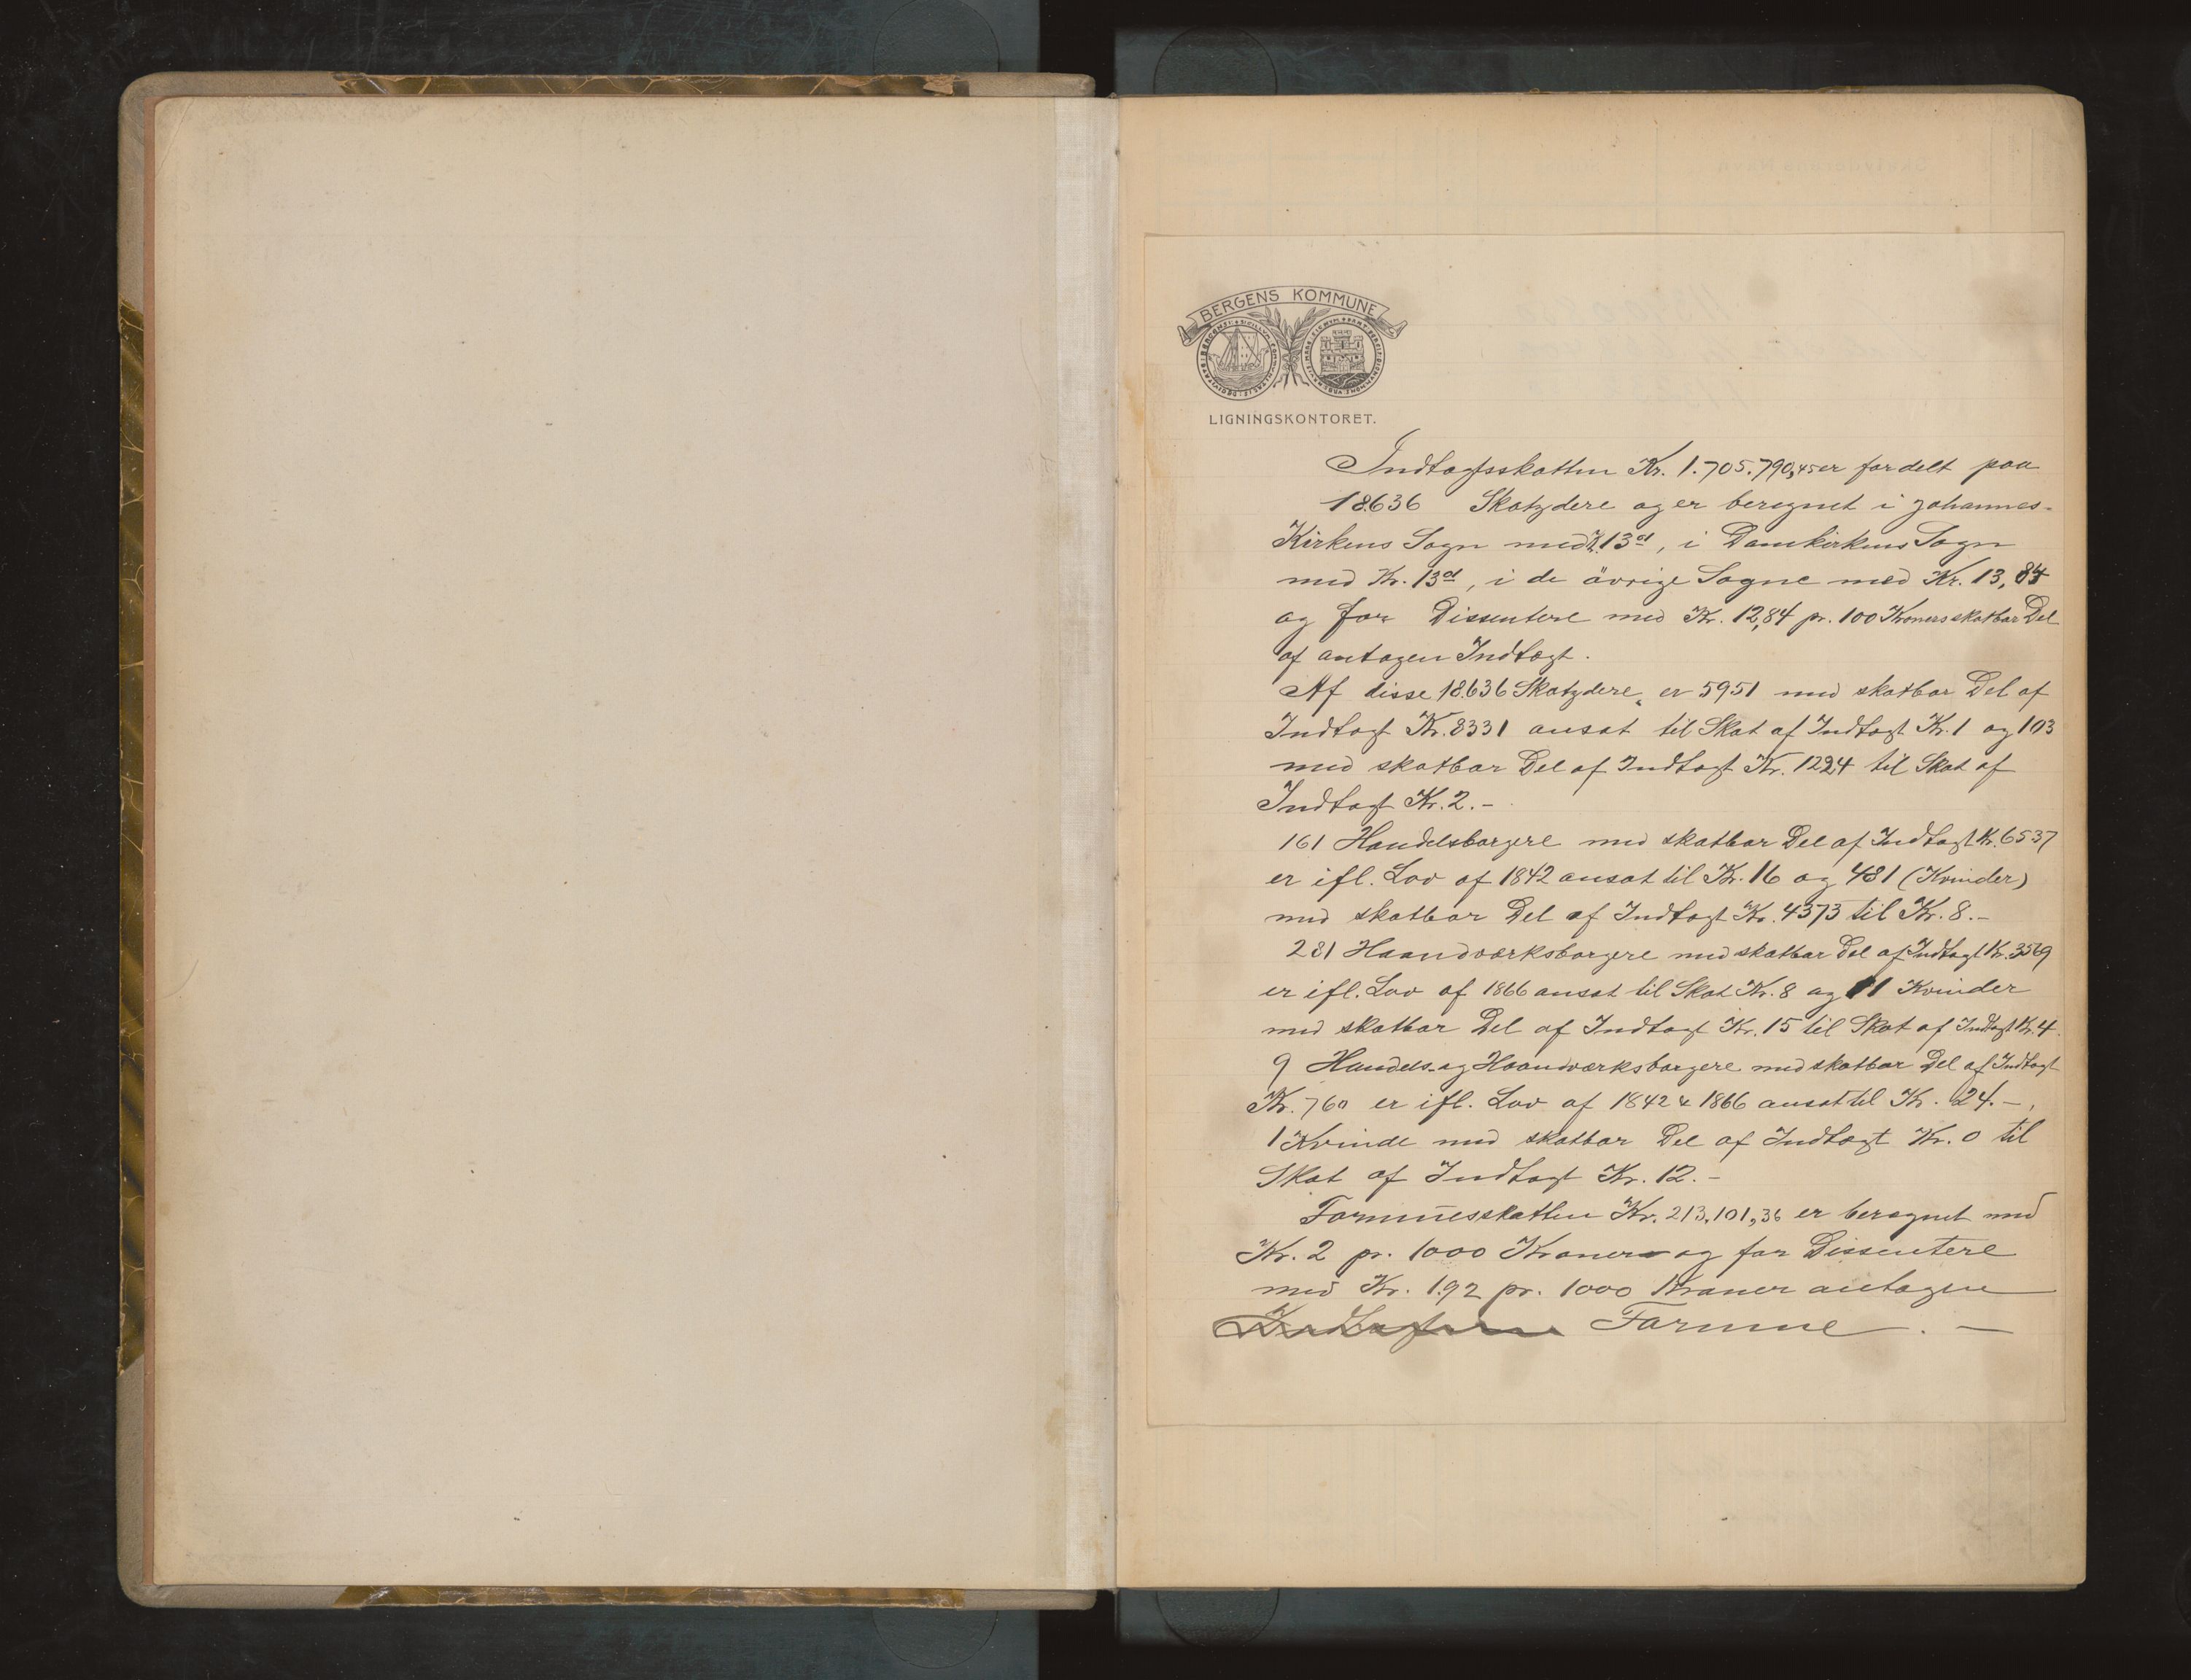 BERGENS KOMMUNE
LIGNINGSKONTORET.
Indtægtsskatten Kr. 1.705.790,45 er fordelt paa
18636 Skatydere og er beregnet i Johannes-
Kirkens Sogn med 13, i Domkirkens Sogn
med Kr. 13, i de øvrige Sogne med Kr. 13,84
og for Dissentere med Kr. 12,84 pr. 100 Kroners skatbar Del
af antagen Indtægt.
Af disse 18.636 Skatydere er 5951 med skatbar Del af
Indtægt Kr. 8331 ansat til Skat af Indtægt Kr. 1 og 103
med skatbar Del af Indtægt Kr. 1224 til Skat af
Indtægt Kr. 2.-
161 Handelsborgere med skatbar Del af Indtægt Kr. 6537
er ifl. Lov af 1842 ansat til Kr. 16 og 481 (Kvinder)
med skatbar Del af Indtægt Kr. 4373 til Kr. 8.-
281 Haandværksborgere med skatbar Del af Indtægt Kr.
er ifl. Lov af 1866 ansat til Skat Kr. 8 og 11 Kvinder
med skatbar Del af Indtægt Kr. 15 til Skat af Indtægt Kr. 4.
9 Handels- og Haandværksborgere med skatbar Del af Indtægt
Kr. 760 er ifl. Lov af 1842 & 1866 ansat til Kr. 24.-,
1 Kvinde med skatbar Del af Indtægt Kr. 0 til
Skat af Indtægt Kr. 12.-
Formuesskatten Kr. 213.101,36 er beregnet med
Kr. 2 pr. 1000 Kroner og for Dissentere
med Kr. 1.92 pr. 1000 Kroner antagen
Formue. —